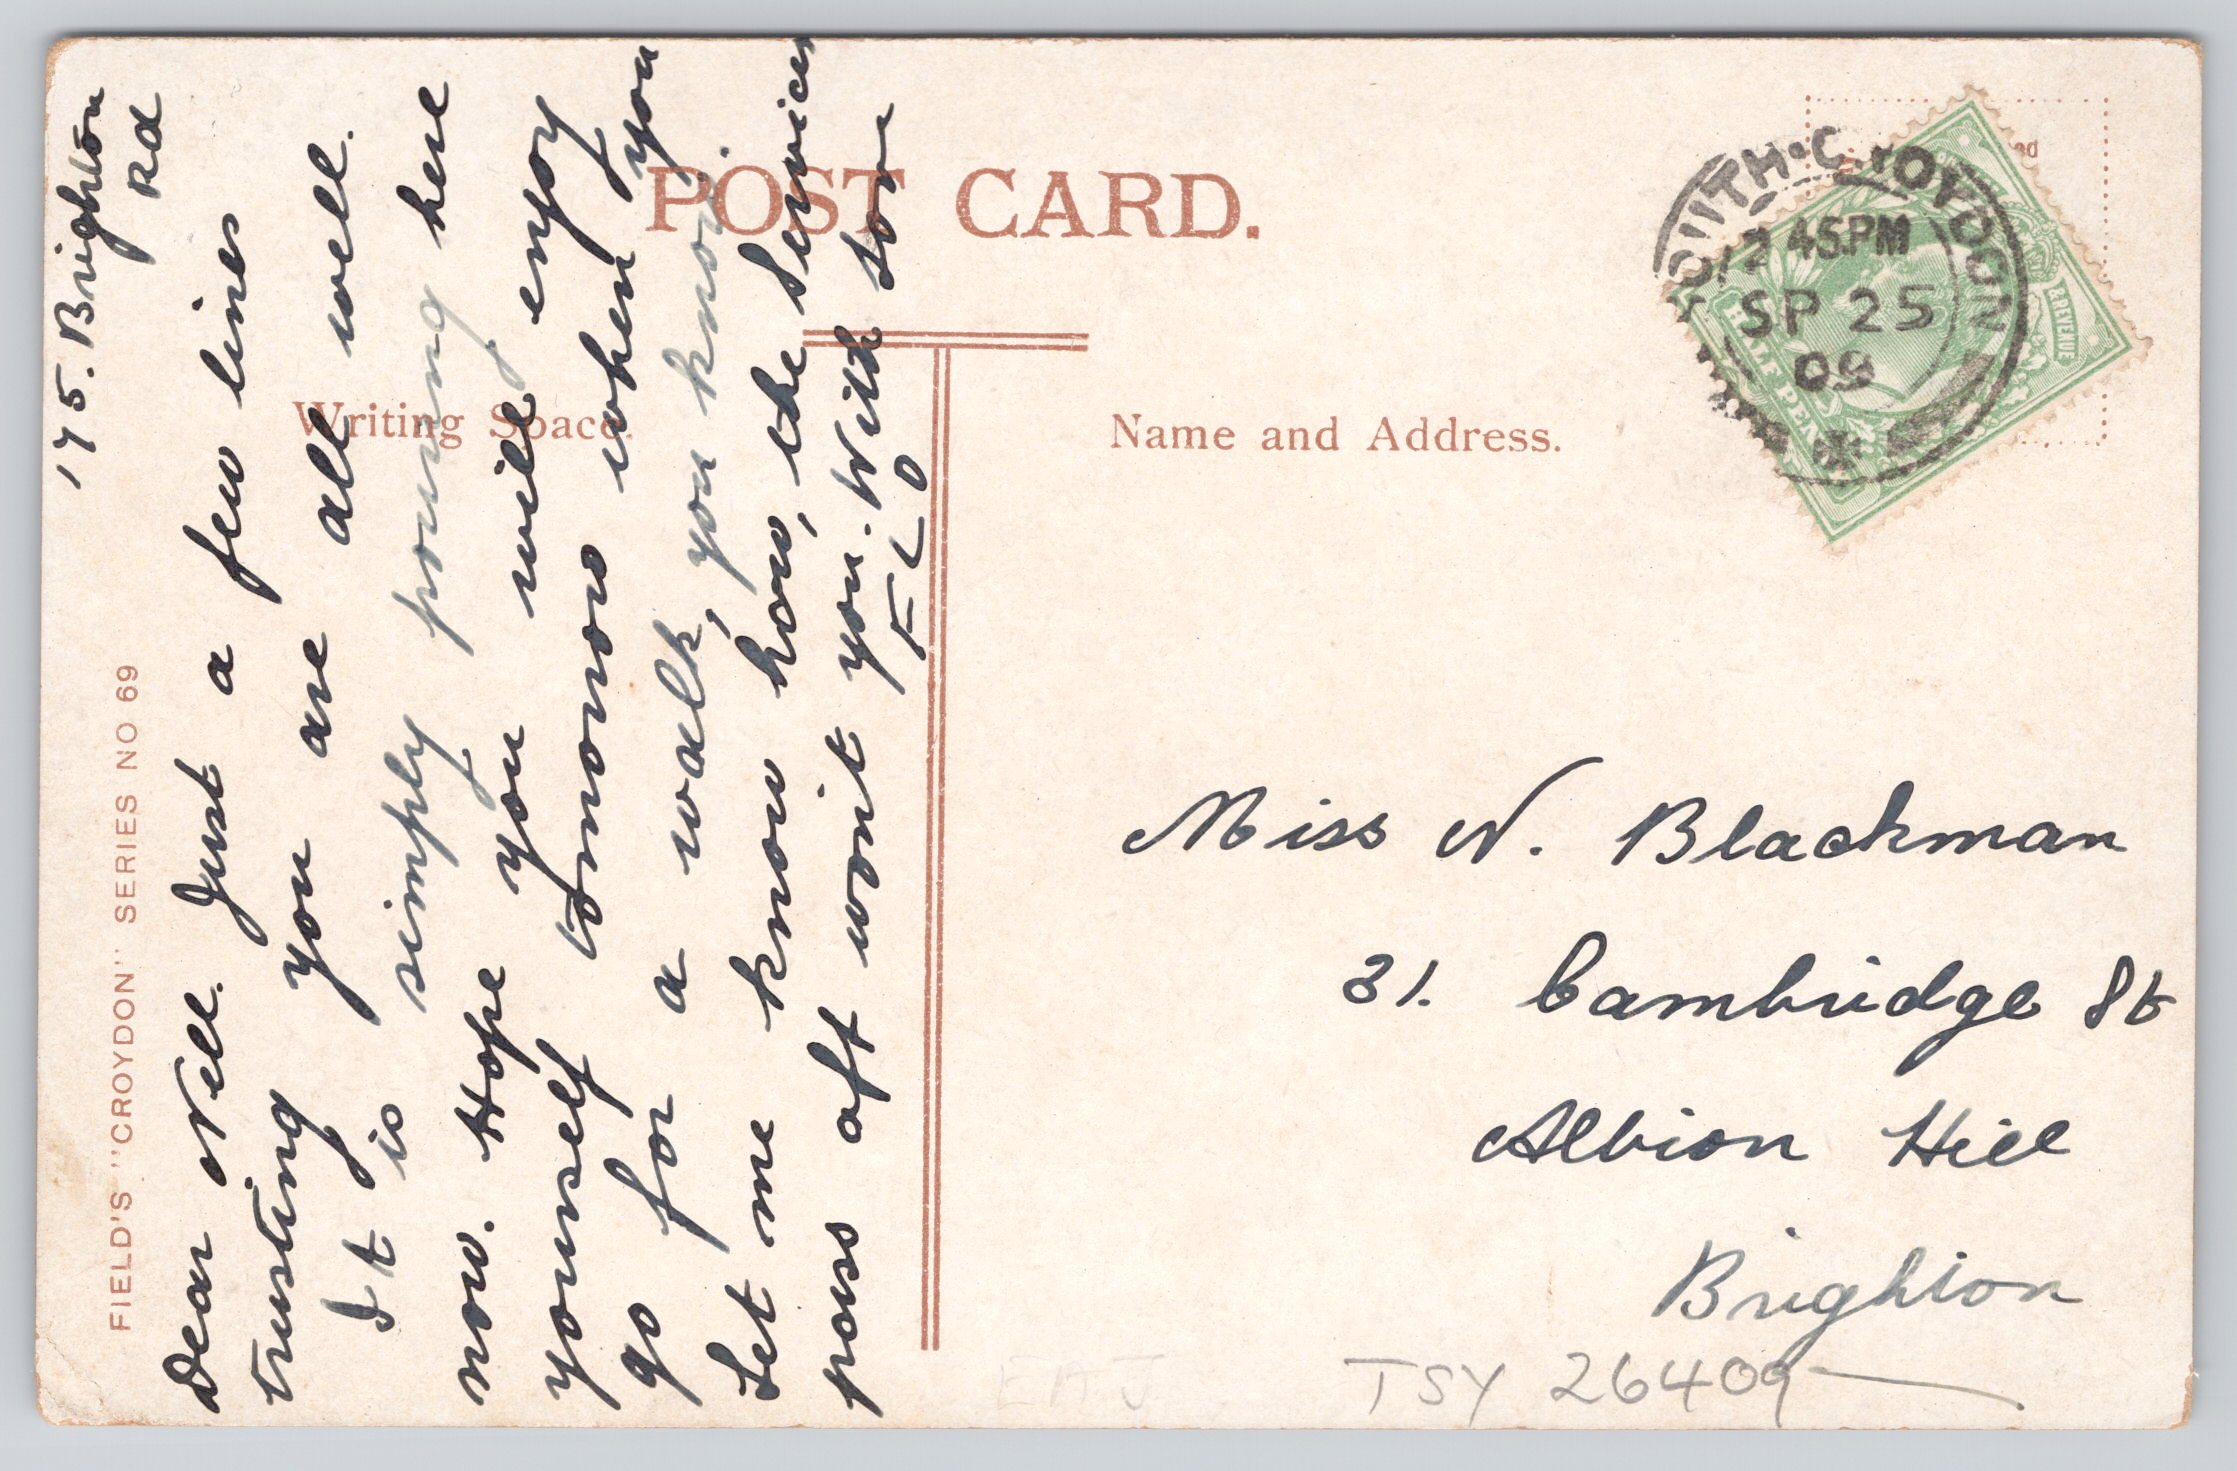 175. Brighton
Rd
Dear Nell. Just a few lines
trusting you are all well.
It is simply pouring here
now. Hope you will enjoy
yourself tomorrow when you
go for a walk, you know.
Let me know how, the Services
pass aft wont you. With love
FLO
FIELD'S "CROYDON" SERIES NO 69
POST CARD.
Writing Space.
Name and Address.
SOUTH·CROYDON
2 45PM
SP 25
09
& REVENUE
HALF PENNY
Miss N. Blackman
31. Cambridge St
Albion Hill
Brighton
EAJ
TSY 26409